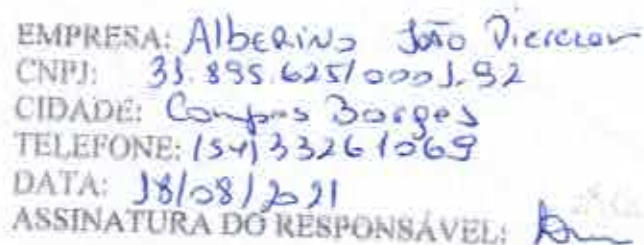 EMPRESA: Alberino João
CNPJ: 31.895.625/0001.92
CIDADE: Campos Borges
TELEFONE: (54) 33261069
DATA: 18/08/2021
ASSINATURA DO RESPONSÁVEL: